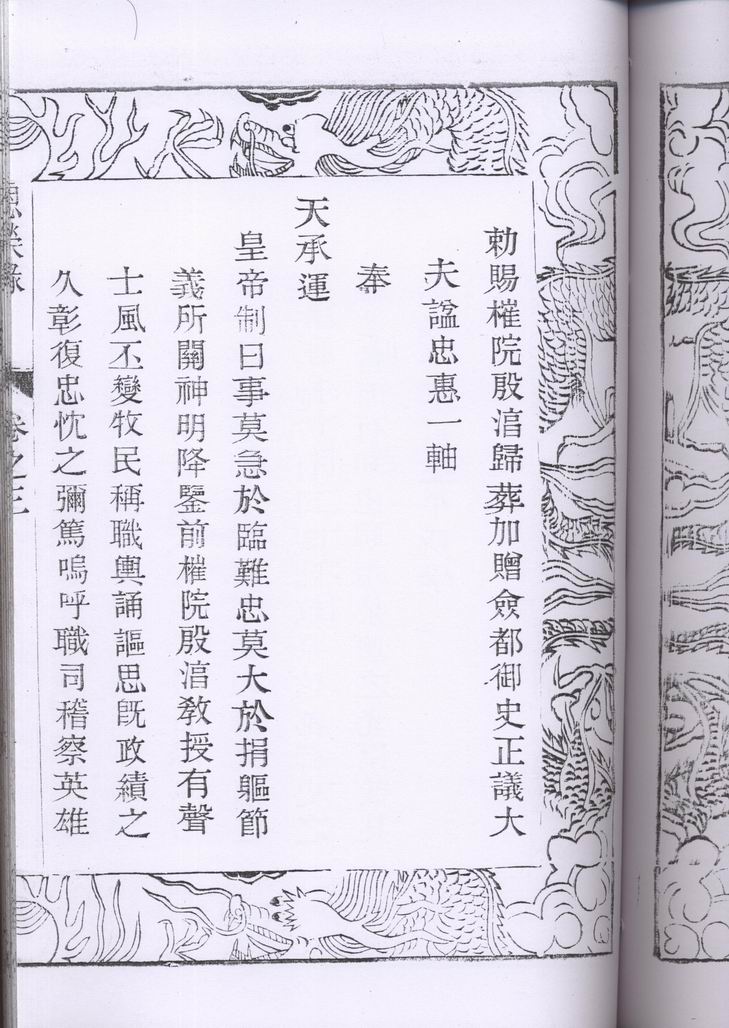 勅賜榷院殷涪歸葬加贈僉都御史正議大
夫諡忠惠一軸
奉
天承運
皇帝制曰事莫急於臨難忠莫大於捐軀節
義所關神明降鑒前榷院殷涪教授有聲
士風丕變牧民稱職輿誦謳思旣政績之
久彰復忠忱之彌篤嗚呼職司稽察英雄
恩榮錄
卷之三